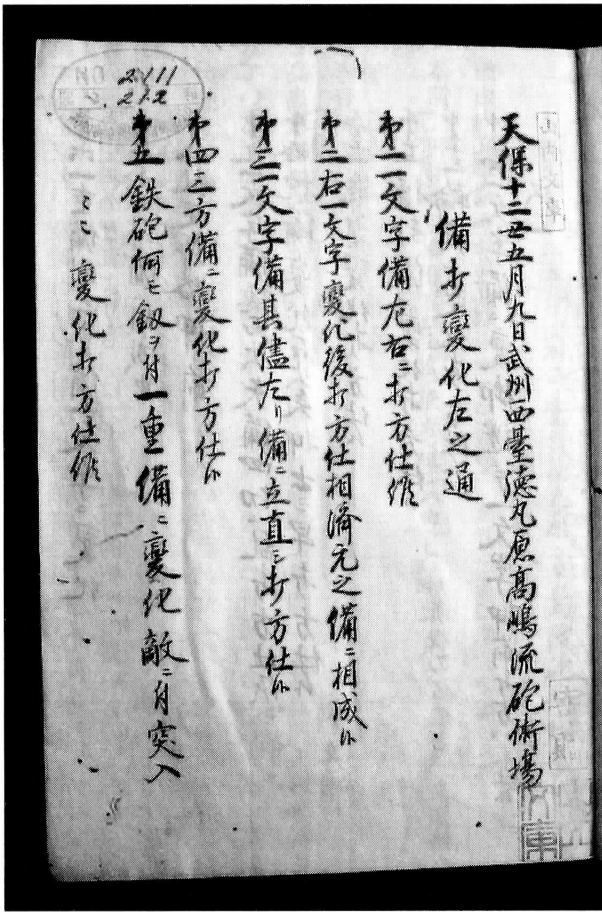 天保十二丑五月九日武州四臺徳丸原高嶋流砲術場
備打變化左之通
第一一文字備左右ニ打方仕候
第二右一文字變化後打方仕相濟元之備ニ相成候
第三一文字備其儘左り備ニ立直シ打方仕候
第四三方備ニ變化打方仕候
第五鉄砲何モ釼ヲ付一重備ニ變化敵ニ向突入
變化打方仕候
2111
212